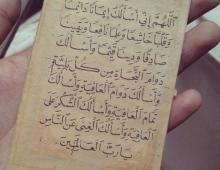 اللَّهُمَّ إِنِّي أَسْأَلُكَ إِيمَانًا دَائِمًا
وَقَلْبًا خَاشِعًا وَعِلْمًا نَافِعًا وَيَقِينًا
صَادِقًا وَدِينًا قَيِّمًا وَأَسْأَلُكَ
دَوَامَ النَّجَاةِ مِنْ كُلِّ بَلِيَّةٍ
وَأَسْأَلُكَ دَوَامَ الْعَافِيَةِ وَأَسْأَلُكَ
تَمَامَ الْعَافِيَةِ وَأَسْأَلُكَ الشُّكْرَ عَلَى
الْعَافِيَةِ وَأَسْأَلُكَ الْغِنَى عَنِ النَّاسِ
يَا رَبَّ الْعَالَمِينَ.